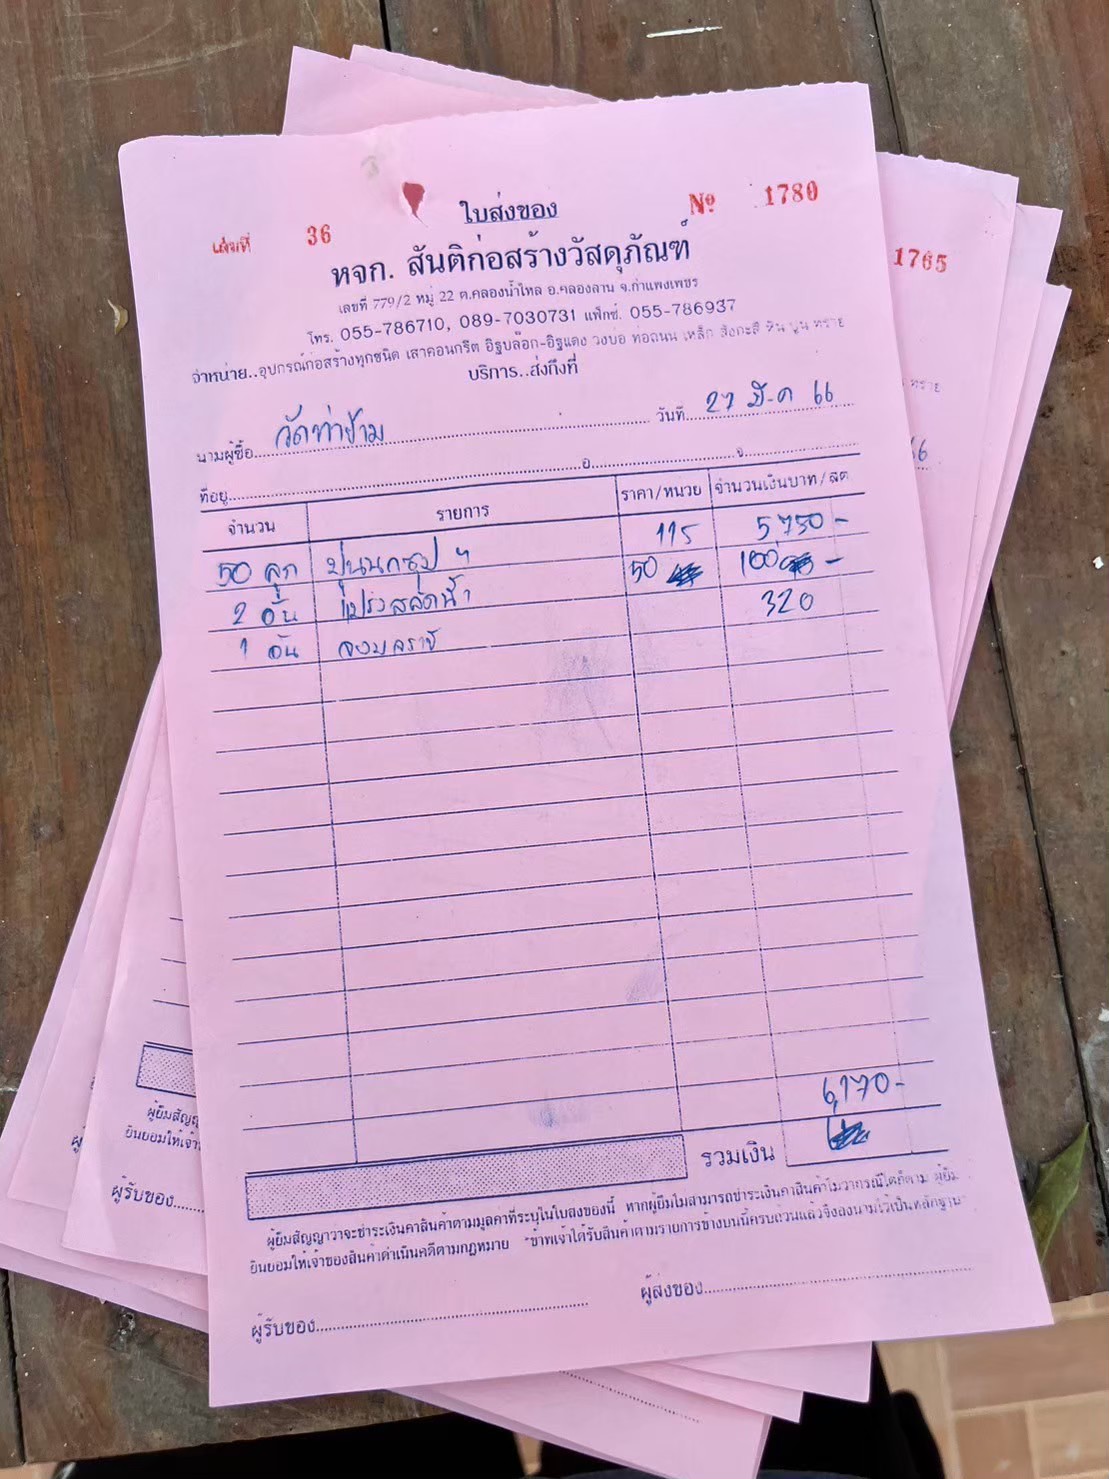 ใบส่งของ
เล่มที่ 36 Nº 1780
หจก. สันติก่อสร้างวัสดุภัณฑ์
เลขที่ 779/2 หมู่ 22 ต.คลองน้ำไหล อ.คลองลาน จ.กำแพงเพชร
โทร. 055-786710, 089-7030731 แฟ็กซ์. 055-786937
จำหน่าย..อุปกรณ์ก่อสร้างทุกชนิด เสาคอนกรีต อิฐบล๊อก-อิฐแดง วงบ่อ ท่อถนน เหล็ก สังกะสี หิน ปูน ทราย
บริการ..ส่งถึงที่
นามผู้ซื้อ วัดท่าข้าม วันที่ 27 มี.ค 66
ที่อยู่ อ. จ.
จำนวน รายการ ราคา/หน่วย จำนวนเงินบาท/สต
50 ลูก ปูนนกฮูก ฯ 115 5750-
2 อัน แปรงสลัดน้ำ 50 100-
1 อัน 320
6,170-
รวมเงิน
ผู้ยืมสัญญาว่าจะชำระเงินค่าสินค้าตามมูลค่าที่ระบุในใบส่งของนี้ หากผู้ยืมไม่สามารถชำระเงินค่าสินค้าไม่ว่ากรณีใดก็ตาม ผู้ยืม
ยินยอมให้เจ้าของสินค้าดำเนินคดีตามกฎหมาย "ข้าพเจ้าได้รับสินค้าตามรายการข้างบนนี้ครบถ้วนแล้วจึงลงนามไว้เป็นหลักฐาน"
ผู้รับของ ผู้ส่งของ
1765
ทราย
66
ผู้ยืมสัญญ
ยินยอมให้เจ้า
ผู้รับของ